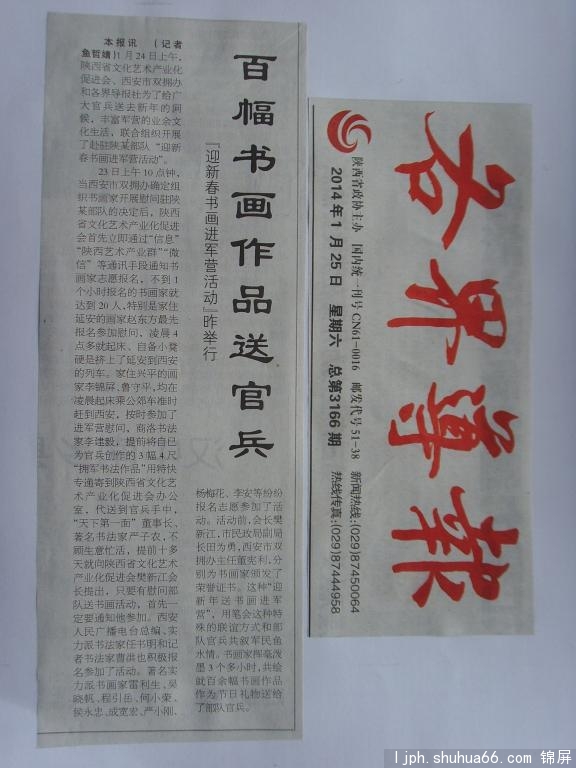 百幅书画作品送官兵
『迎新春书画进军营活动』昨举行
本报讯 （记者
鱼哲靖）1月24日上午，
陕西省文化艺术产业化
促进会、西安市双拥办
和各界导报社为了给广
大官兵送去新年的问
候，丰富军营的业余文
化生活，联合组织开展
了赴驻陕某部队“迎新
春书画进军营活动”。
23日上午10点钟，
当西安市双拥办确定组
织书画家开展慰问驻陕
某部队的决定后，陕西
省文化艺术产业化促进
会首先立即通过“信息”
“陕西艺术产业群”“微
信”等通讯手段通知书
画家志愿报名，不到1
个小时报名的书画家就
达到20人，特别是家住
延安的画家赵东方最先
报名参加慰问，凌晨4
点多就起床、自备小凳
硬是挤上了延安到西安
的列车。家住兴平的画
家李锦屏、鲁守平，均在
凌晨起床乘公郊车准时
赶到西安，按时参加了
进军营慰问，商洛书法
家李建毅，提前将自己
为官兵创作的3幅4尺
“拥军书法作品”用特快
专递寄到陕西省文化艺
术产业化促进会办公
室，代送到官兵手中，
“天下第一面”董事长、
著名书法家严子衣，不
顾生意忙活，提前十多
天就向陕西省文化艺术
产业化促进会樊新江会
长提出，只要有慰问部
队送书画活动，首先一
定要通知他参加。西安
人民广播电台总编、实
力派书法家任书明和记
者书法家曹洪也积极报
名参加了活动。著名实
力派书画家雷利生、吴
晓帆、程引岳、何小荣、
侯永忠、成宽宏、严小刚、
杨梅花、李安等纷纷
报名志愿参加了活
动。活动前，会长樊
新江，市民政局副局
长田为勇，西安市双
拥办主任董宪利，分
别为书画家颁发了
荣誉证书。这种“迎
新年送书画进军
营”，用笔会这种特
殊的联谊方式和部
队官兵共叙军民鱼
水情。书画家挥毫泼
墨3个多小时，共绘
就百余幅书画作品
作为节日礼物送给
了部队官兵。
各界导报
陕西省政协主办 国内统一刊号 CN61-0016 邮发代号 51-38 新闻热线：(029)87450064
2014年1月25日 星期六 总第3166期 热线传真：(029)87444958
ljph.shuhua66.com 锦屏